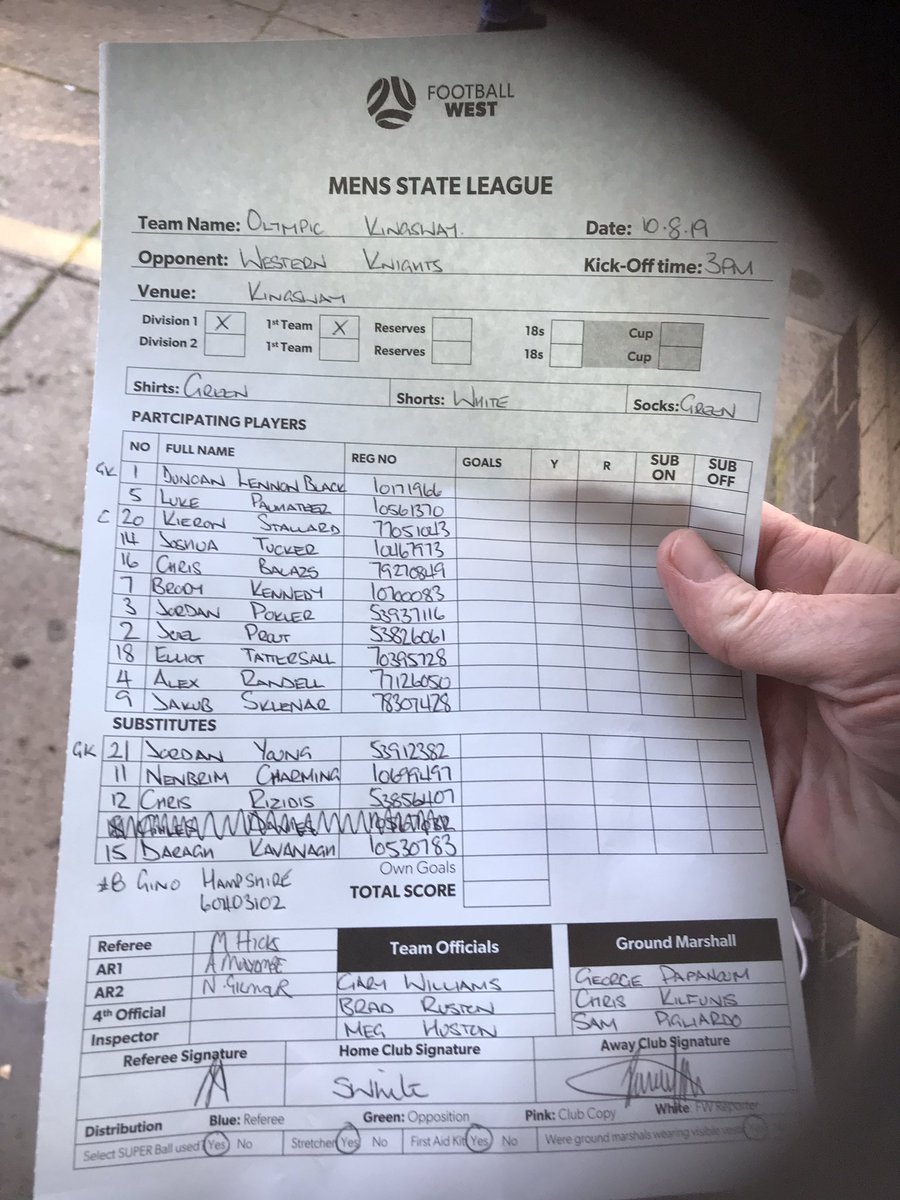 FOOTBALL
WEST
MENS STATE LEAGUE
Team Name: OLYMPIC KINGSWAY. Date: 10.8.19
Opponent: WESTERN KNIGHTS Kick-Off time: 3PM
Venue: KINGSWAY
Division 1 X 1st Team X Reserves 18s Cup
Division 2 1st Team Reserves 18s Cup
Shirts: GREEN Shorts: WHITE Socks: GREEN
PARTCIPATING PLAYERS
NO FULL NAME REG NO GOALS Y R SUB ON SUB OFF
GK 1 DUNCAN LENNON BLACK 10171966
5 LUKE PALMATEER 10561370
C 20 KIERON STALLARD 77051043
14 JOSHUA TUCKER 10467973
16 CHRIS BALAZS 79270849
7 BRODY KENNEDY 10700083
3 JORDAN POKLER 53937116
2 JOEL PROUT 53826061
18 ELLIOT TATTERSALL 70395728
4 ALEX RANDELL 77126050
9 JAKUB SKLENAR 78307428
SUBSTITUTES
GK 21 JORDAN YOUNG 53912382
11 NENBRIM CHARMING 10699497
12 CHRIS RIZIDIS 53856407
15 DARAGH KAVANAGH 10530783
Own Goals
GINO HAMPSHIRE
60403102
TOTAL SCORE
Referee M HICKS
AR1
AR2 N. GILMAR
4th Official
Inspector
Team Officials
GARY WILLIAMS
BRAD RUSTON
MEG HUSTON
Ground Marshall
GEORGE PAPANOUM
CHRIS KILFUNIS
SAM PIGLIARDO
Referee Signature Home Club Signature Away Club Signature
SWhite
Distribution Blue: Referee Green: Opposition Pink: Club Copy White: FW Reporter
Select SUPER Ball used Yes No Stretcher Yes No First Aid Kit Yes No Were ground marshals wearing visible